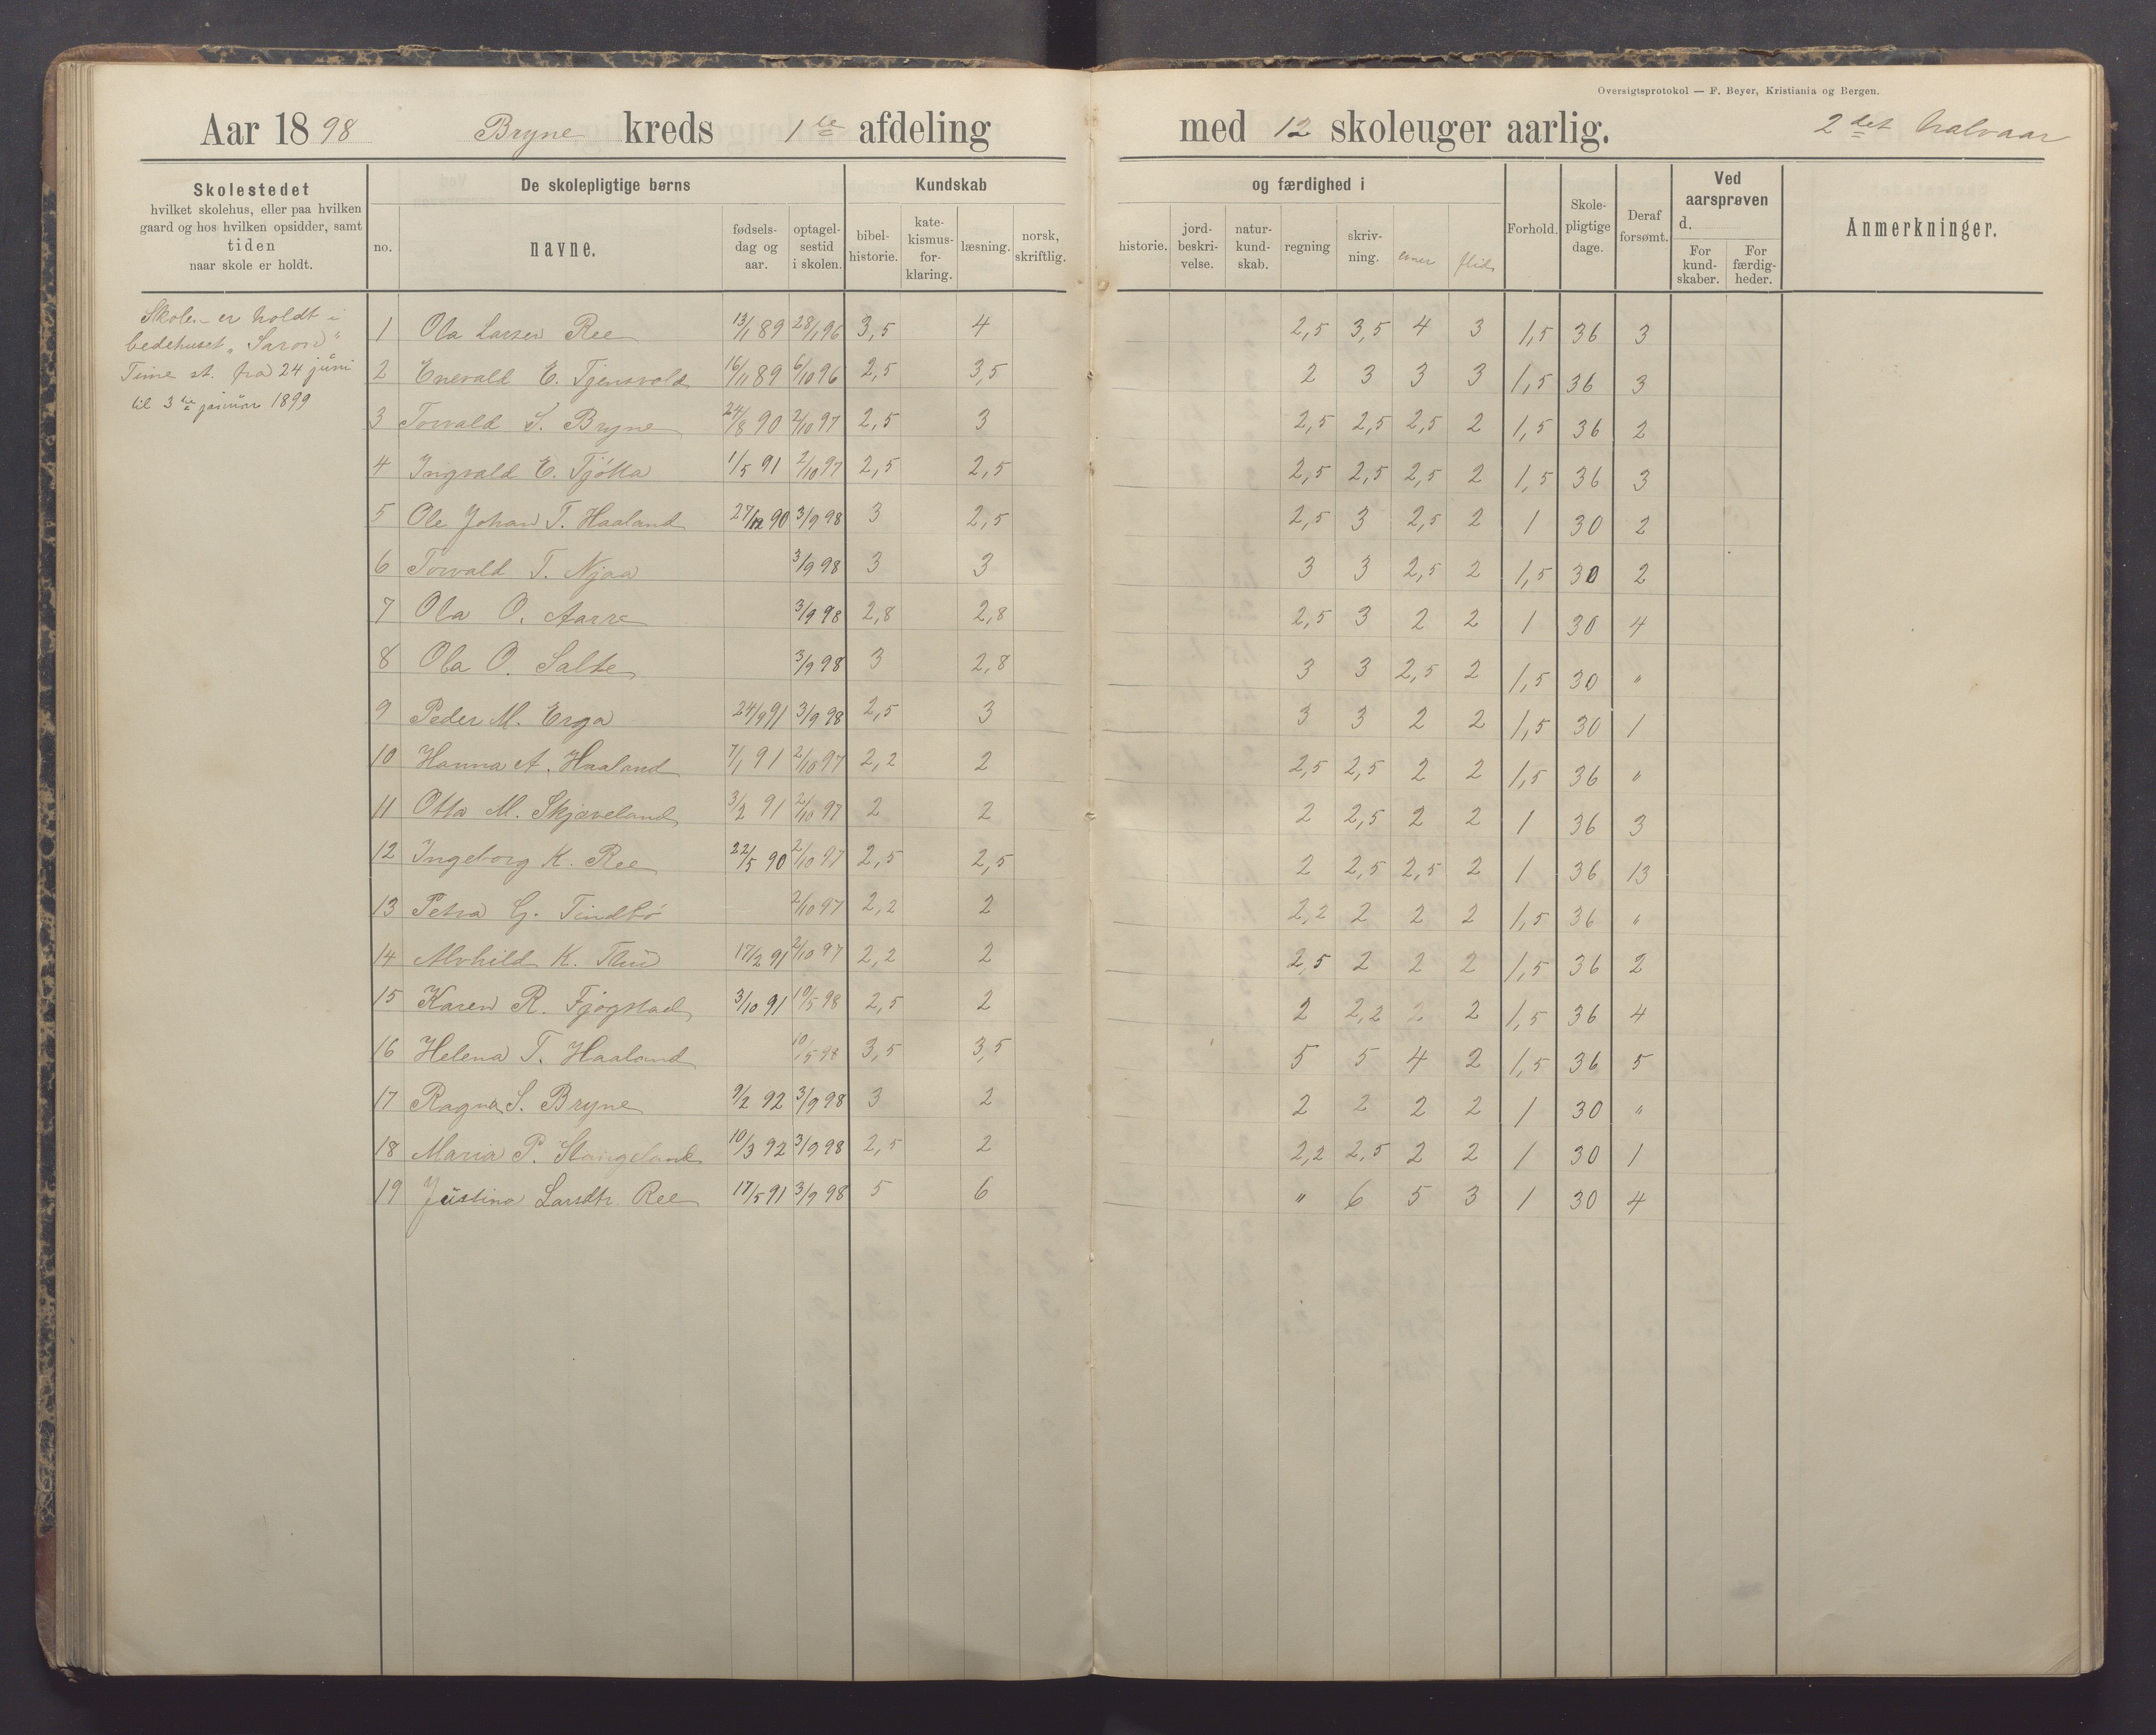 Oversigtsprotokol — F. Beyer, Kristiania og Bergen.
Aar 1898 Bryne kreds 1ste afdeling med 12 skoleuger aarlig. 2det halvaar
Skolestedet hvilket skolehus, eller paa hvilken gaard og hos hvilken opsidder, samt tiden naar skole er holdt.
De skolepligtige børns
no. navne. fødsels-dag og aar. optagel-sestid i skolen.
Kundskab og færdighed i
bibel-historie. kate-kismus-for-klaring. læsning. norsk, skriftlig. historie. jord-beskri-velse. natur-kund-skab. regning skriv-ning. evner flid
Forhold. Skole-pligtige dage. Deraf forsømt.
Ved aarsprøven d.
For kund-skaber. For færdig-heder.
Anmerkninger.
Skolen er holdt i
bedehuset „Saron“
Time st. fra 24 juni
til 3die januar 1899
1 Ola Larsen Ree 13/1 89 28/1 96 3,5 4 2,5 3,5 4 3 1,5 36 3
2 Enevald E. Tjensvold 16/11 89 6/10 96 2,5 3,5 2 3 3 3 1,5 36 3
3 Torvald S. Bryne 24/8 90 2/10 97 2,5 3 2,5 2,5 2,5 2 1,5 36 2
4 Ingvald E. Tjøtta 1/5 91 2/10 97 2,5 2,5 2,5 2,5 2,5 2 1,5 36 3
5 Ole Johan T. Haaland 27/12 90 3/9 98 3 2,5 2,5 3 2,5 2 1 30 2
6 Torvald T. Njaa 3/9 98 3 3 3 3 2,5 2 1,5 30 2
7 Ola O. Aarre 3/9 98 2,8 2,8 2,5 3 2 2 1 30 4
8 Ola O. Salte 3/9 98 3 2,8 3 3 2,5 2 1,5 30 "
9 Peder M. Erga 24/9 91 3/9 98 2,5 3 3 3 2 2 1,5 30 1
10 Hanna A. Haaland 7/1 91 2/10 97 2,2 2 2,5 2,5 2 2 1,5 36 "
11 Otto M. Skjæveland 3/2 91 2/10 97 2 2 2 2,5 2 2 1 36 3
12 Ingeborg K. Ree 22/5 90 2/10 97 2,5 2,5 2 2,5 2,5 2 1 36 13
13 Petra G. Tindbø 2/10 97 2,2 2 2,2 2 2 2 1,5 36 "
14 Alvhild K. Thu 17/2 91 2/10 97 2,2 2 2,5 2 2 2 1,5 36 2
15 Karen R. Fjogstad 3/10 91 10/5 98 2,5 2 2 2,2 2 2 1,5 36 4
16 Helena T. Haaland 10/5 98 3,5 3,5 5 5 4 2 1,5 36 5
17 Ragna S. Bryne 9/2 92 3/9 98 3 2 2 2 2 2 1 30 "
18 Maria P. Stangeland 10/3 92 3/9 98 2,5 2 2,2 2,5 2 2 1 30 1
19 Justina Larsdtr. Ree 17/5 91 3/9 98 5 6 " 6 5 3 1 30 4